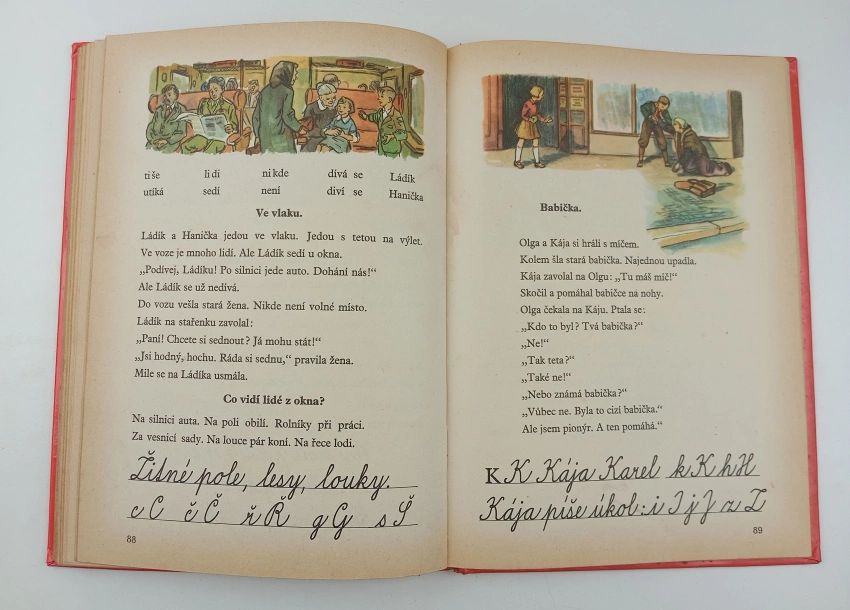 tiše lidí nikde dívá se Ládík
utíká sedí není diví se Hanička
Ve vlaku.
Ládík a Hanička jedou ve vlaku. Jedou s tetou na výlet.
Ve voze je mnoho lidí. Ale Ládík sedí u okna.
„Podívej, Ládíku! Po silnici jede auto. Dohání nás!“
Ale Ládík se už nedívá.
Do vozu vešla stará žena. Nikde není volné místo.
Ládík na stařenku zavolal:
„Paní! Chcete si sednout? Já mohu stát!“
„Jsi hodný, hochu. Ráda si sednu,“ pravila žena.
Mile se na Ládíka usmála.
Co vidí lidé z okna?
Na silnici auta. Na poli obilí. Rolníky při práci.
Za vesnicí sady. Na louce pár koní. Na řece lodi.
Žitné pole, lesy, louky.
c C č Č ř Ř g G s Š
88
Babička.
Olga a Kája si hráli s míčem.
Kolem šla stará babička. Najednou upadla.
Kája zavolal na Olgu: „Tu máš míč!“
Skočil a pomáhal babičce na nohy.
Olga čekala na Káju. Ptala se:
„Kdo to byl? Tvá babička?“
„Ne!“
„Tak teta?“
„Také ne!“
„Nebo známá babička?“
„Vůbec ne. Byla to cizí babička.“
Ale jsem pionýr. A ten pomáhá.“
K K Kája Karel k K h H
Kája píše úkol: i I j J z Z
89